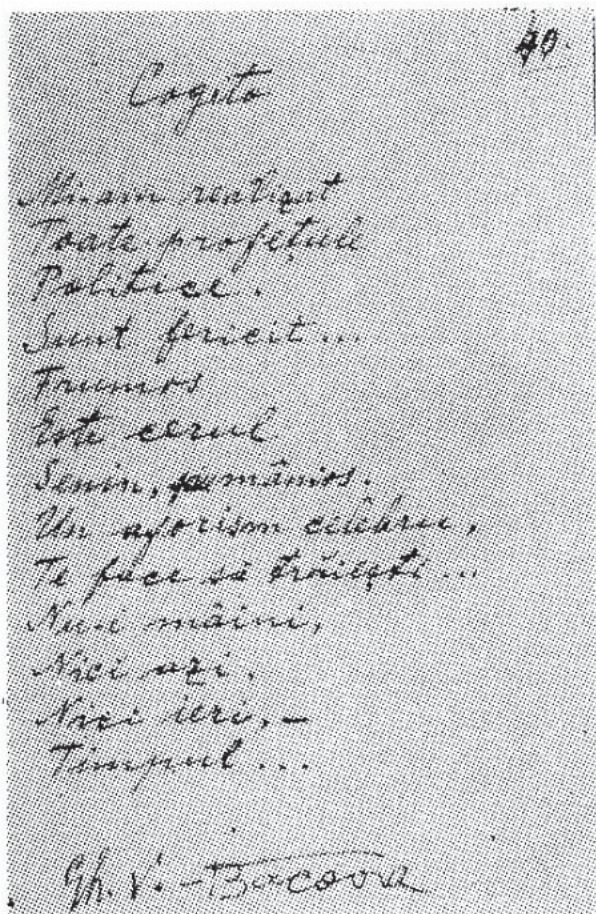 40.
Cogito
Mi-am realizat
Toate profețiile
Politice.
Sunt fericit...
Frumos
Este cerul
Senin, nu mânios.
Un aforism celebru,
Te face să trăiești...
Nu-i mâini,
Nici azi,
Nici ieri, –
Timpul...
Gh. V. - Bacovia